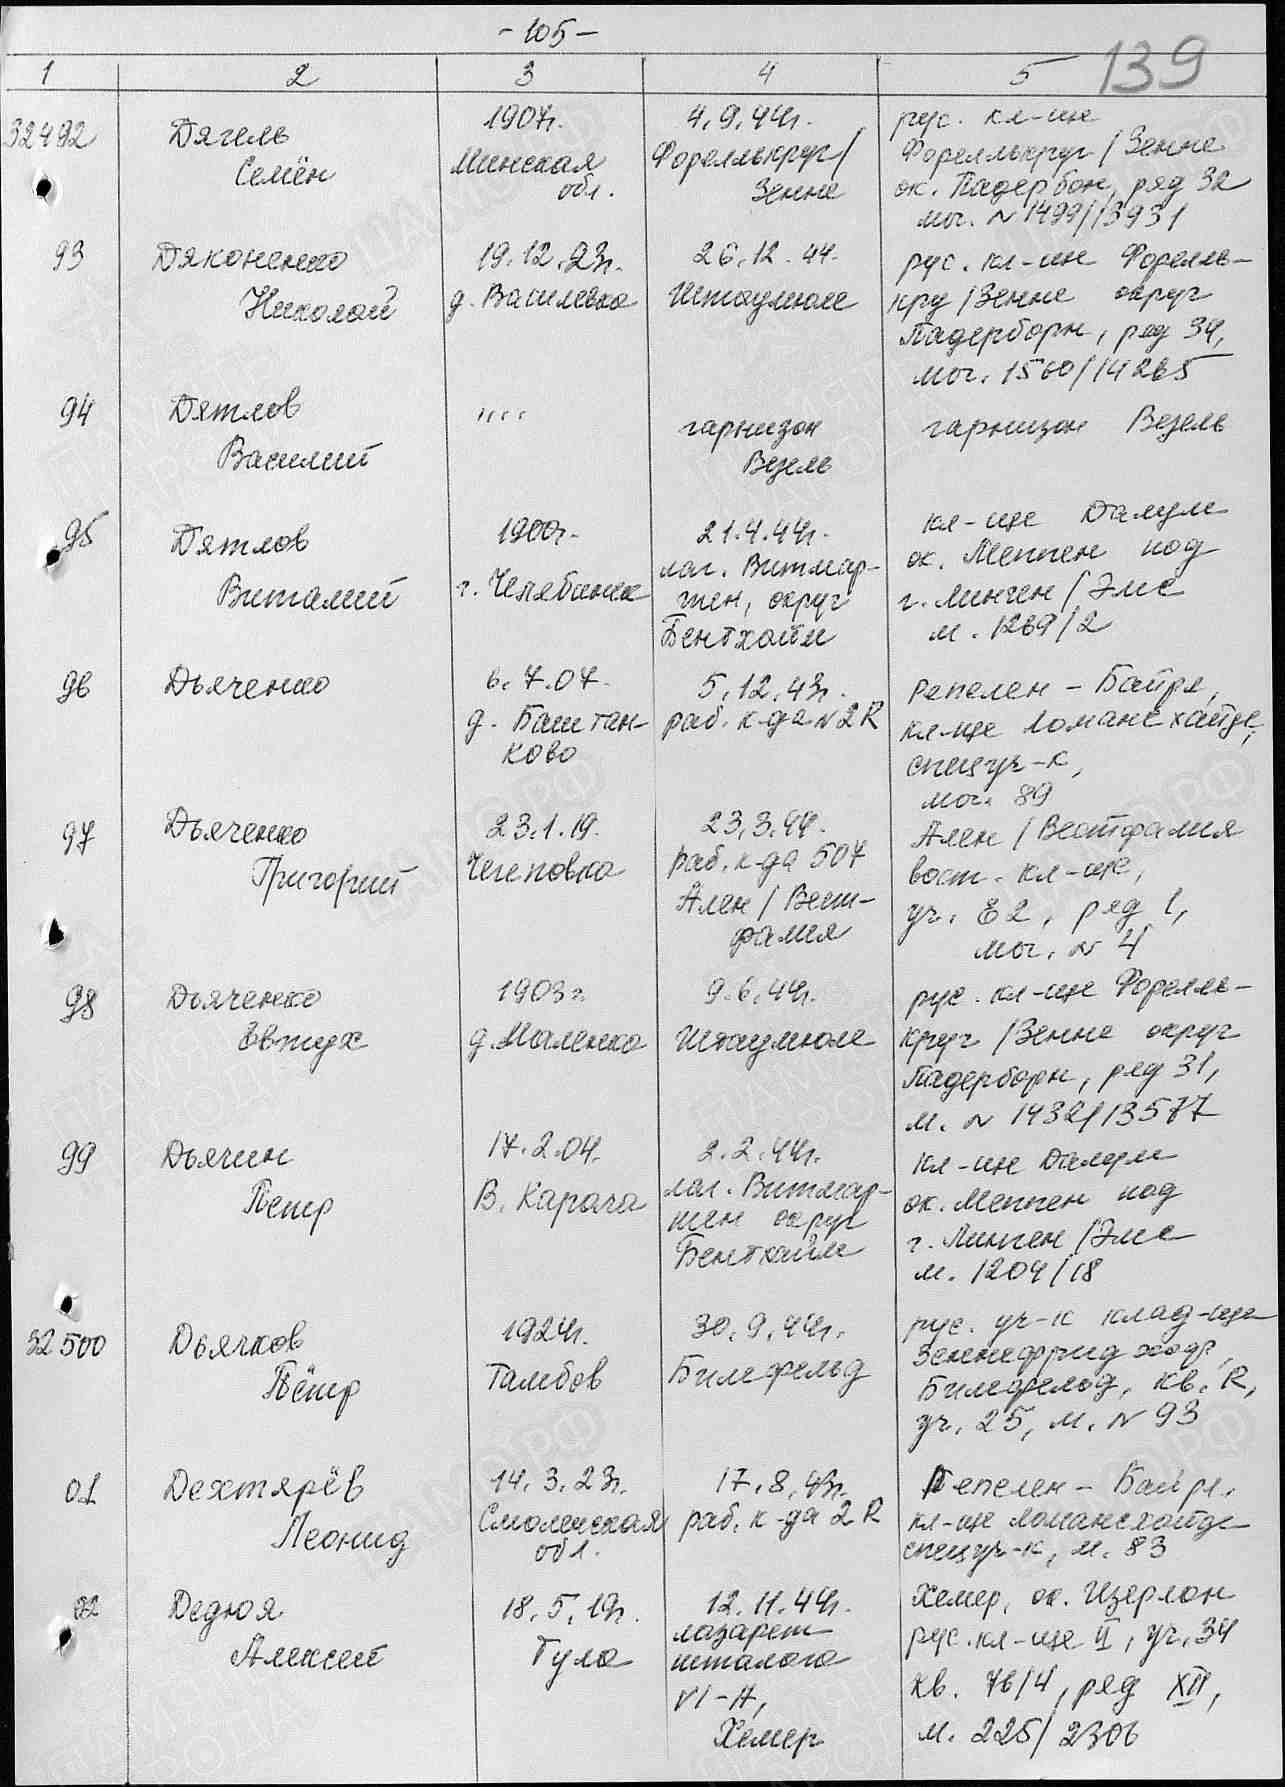 - 105 -
139
1 2 3 4 5
32492
Дягель
Семён
1907г.
Минская
обл.
4.9.44г.
Фореллькруг/
Зенне
рус. кл-ще
Фореллькруг/Зенне
ок. Падерборн, ряд 32
мог. № 1499//13931
93
Дяконенко
Николай
19.12.23г.
д. Василевка
26.12.44.
Штаумюле
рус. кл-ще Форелль-
кру/Зенне округ
Падерборн, ряд 34,
мог. 1560/14265
94
Дятлов
Василий
""
гарнизон
Везель
гарнизон Везель
95
Дятлов
Виталий
1900г.
г. Челябинск
21.4.44г.
лаг. Витмар-
шен, округ
Бентхайм
кл-ще Далум
ок. Меппен под
г. Линген/Эмс
м. 1269/2
96
Дьяченко
6.7.07.
д. Баштан-
ково
5.12.43г.
раб. к-да №2R
Репелен - Байрл,
кл-ще Ломансхайде,
спецуч-к,
мог. 89
97
Дьяченко
Григорий
23.1.19.
23.3.44.
раб. к-да 507
Ален/Вест-
фалия
Ален/Вестфалия
вост. кл-ще,
уч. E2, ряд 1,
мог. № 4
98
Дьяченко
Евтух
1903г.
д. Маленка
9.6.44г.
Штаумюле
рус. кл-ще Форелль-
круг/Зенне округ
Падерборн, ряд 31,
м. № 1432/13577
99
Дьячин
Петр
17.2.04.
В. Карача
2.2.44г.
лаг. Витмар-
шен округ
Бентхайм
кл-ще Далум
ок. Меппен под
г. Линген/Эмс
м. 1204/18
32500
Дьячков
Пётр
1924г.
Тамбов
30.9.44г.
Билефельд
рус. уч-к клад-ща
Зеннефридхоф,
Билефельд, кв. R,
уч. 25, м. № 93
01
Дехтярёв
Леонид
14.3.23г.
Смоленская
обл.
17.8.43г.
раб. к-да 2R
Репелен - Байрл,
кл-ще Ломансхайде
спецуч-к, м. 83
02
Дедюя
Алексей
18.5.19г.
Тула
12.11.44г.
лазарет
шталага
VI-А,
Хемер
Хемер, ок. Изерлон
рус. кл-ще II, уч. 34
кв. 76/4, ряд XII,
м. 225/2306